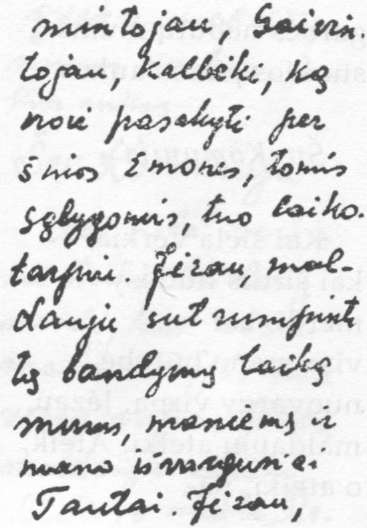 mintojau, Gaivin.
tojau, kalbėki, ką
nori pasakyti per
šiuos žmones, tomis
sąlygomis, tuo laiko.
tarpiu Jėzau, mal-
dauju sutrumpint
tą bandymų laiką
mums, maniems ir
mano išvargusiai
Tautai Jėzau,